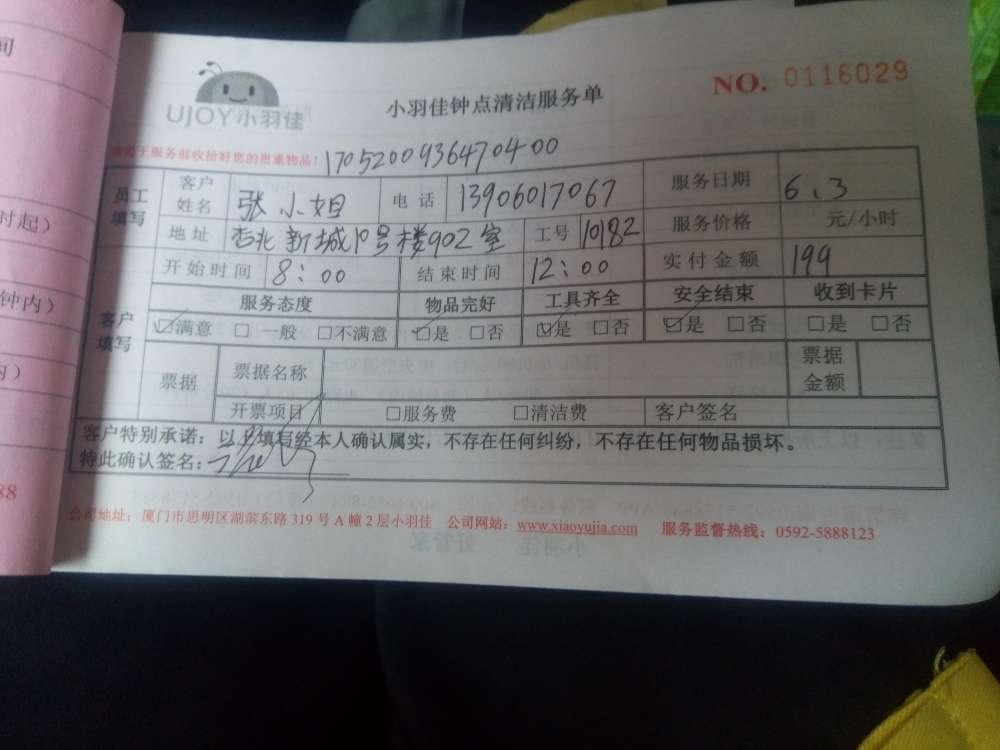 间
时起）
钟内）
内）
88
UJOY小羽佳
小羽佳钟点清洁服务单
NO. 0116029
于服务前收拾好您的贵重物品！
1705200936470400
员工填写 客户姓名 张小姐 电话 13906017067 服务日期 6、3
地址 杏北新城10号楼902室 工号 10182 服务价格 元/小时
开始时间 8：00 结束时间 12：00 实付金额 199
客户填写 服务态度 物品完好 工具齐全 安全结束 收到卡片
☑满意 □一般 □不满意 ☑是 □否 ☑是 □否 ☑是 □否 □是 □否
票据 票据名称 票据金额
开票项目 □服务费 □清洁费 客户签名
客户特别承诺：以上填写经本人确认属实，不存在任何纠纷，不存在任何物品损坏。
特此确认签名：
公司地址：厦门市思明区湖滨东路319号A幢2层小羽佳 公司网站：www.xiaoyujia.com 服务监督热线：0592-5888123